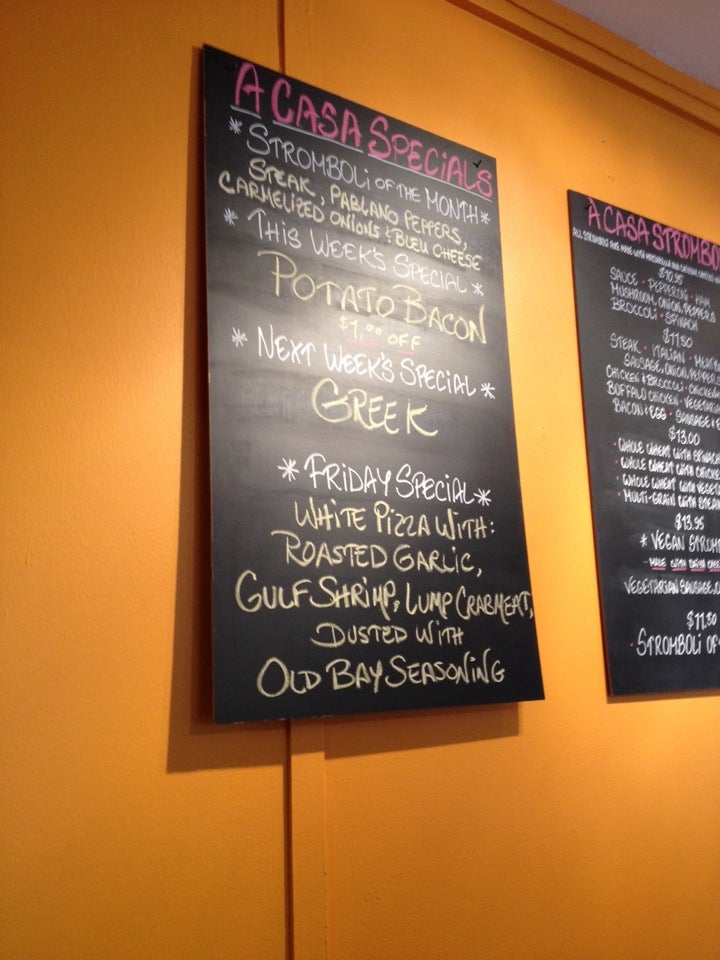 A CASA SPECIALS
* STROMBOLI OF THE MONTH *
STEAK, PABLANO PEPPERS,
CARMELIZED ONIONS & BLEU CHEESE
* THIS WEEK'S SPECIAL *
POTATO BACON
$1.00 OFF
* NEXT WEEK'S SPECIAL *
GREEK
* FRIDAY SPECIAL *
WHITE PIZZA WITH:
ROASTED GARLIC,
GULF SHRIMP, LUMP CRABMEAT,
DUSTED WITH
OLD BAY SEASONING
A CASA
ALL STROMBOLI ARE MADE WITH MOZZARELLA AND CHEDDAR CHEESE
$10.95
SAUCE • PEPPERONI • HAM
MUSHROOM, ONION, PEPPERS
BROCCOLI • SPINACH
$11.50
STEAK • ITALIAN •
SAUSAGE, ONION, PEPPER
CHICKEN & BROCCOLI •
BUFFALO CHICKEN •
BACON & EGG • SAUSAGE &
$13.00
• WHOLE WHEAT WITH
• WHOLE WHEAT WITH
• WHOLE WHEAT WITH
• MULTI-GRAIN WITH
$13.95
* VEGAN
MADE WITH DAIYA
VEGETARIAN SAUSAGE,
$11.50
• STROMBOLI OF